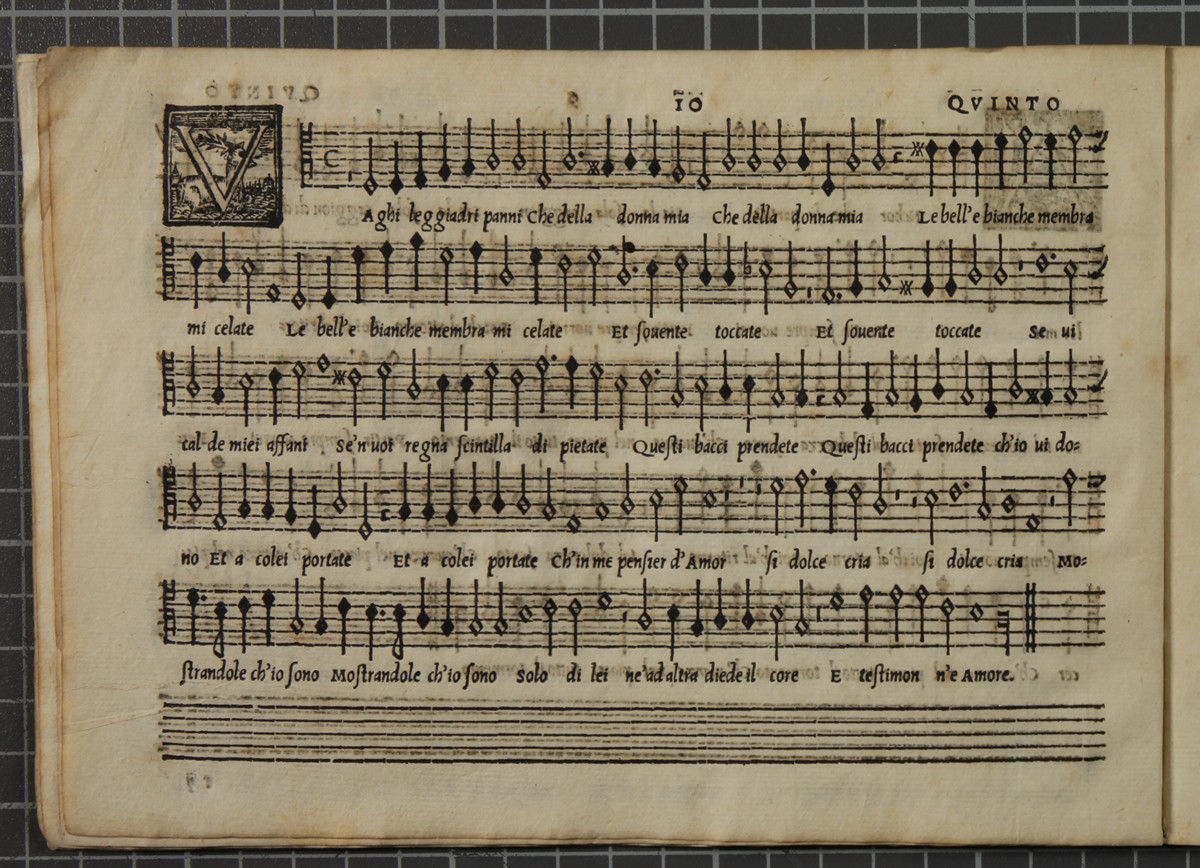 10 QVINTO
VAghi leggiadri panni Che della donna mia Che della donna mia Le bell'e bianche membra
mi celate Le bell'e bianche membra mi celate Et souente toccate Et souente toccate Se ui
cal de miei affani Se'n uoi regna scintilla di pietate Questi bacci prendete Questi bacci prendete ch'io ui do=
no Et a colei portate Et a colei portate Ch'in me pensier d'Amor si dolce cria si dolce cria Mo=
strandole ch'io sono Mostrandole ch'io sono Solo di lei ne'ad altra diede il core E testimon n'e Amore.